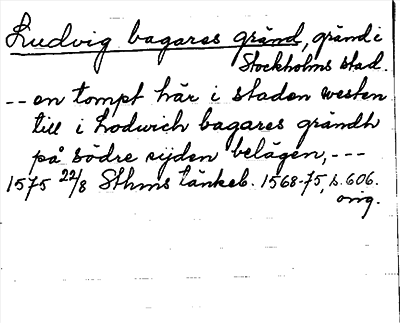 Ludvig bagares gränd, gränd i
Stockholms stad.
-- en tompt här i staden westen
till i Lodwich bagares grändh
på södre sijden belägen, ---
1575 22/8 Sthms tänkeb. 1568-75, s. 606.
orig.